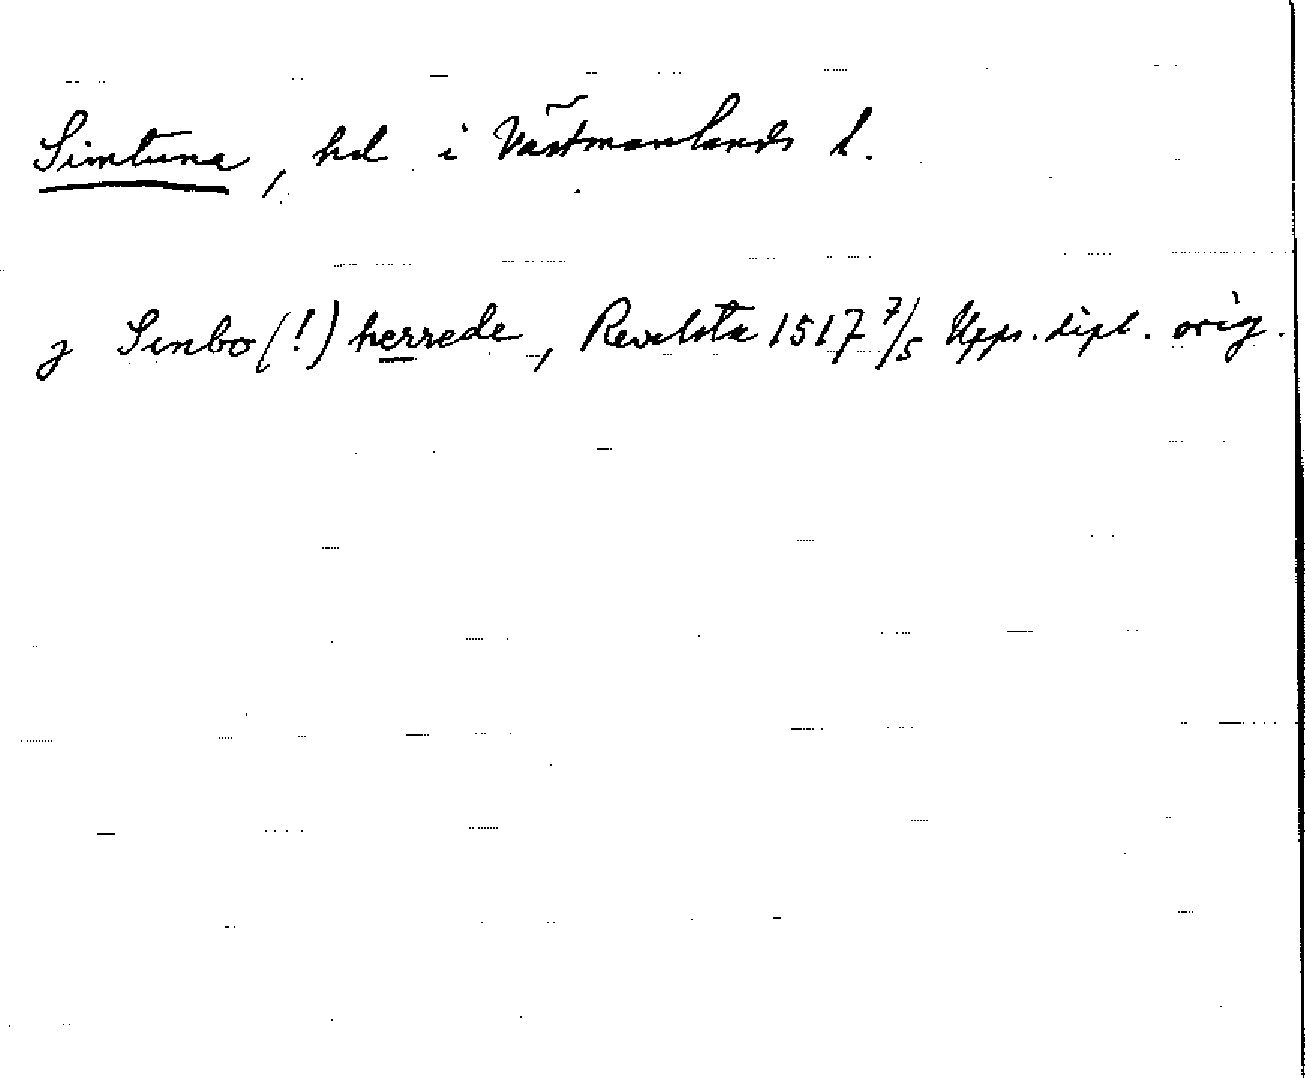 Simtuna, hd i Västmanlands l.
j Sinbo(!) herrede, Revelsta 1517 7/5 Upps. dipl. orig.